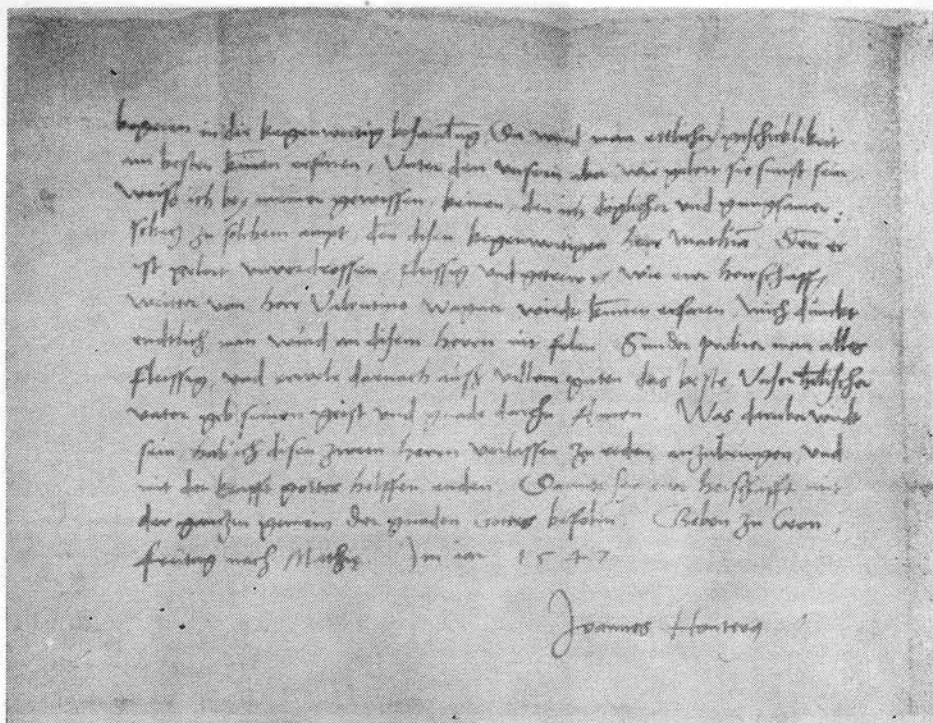 begeren in die kegenwertig behausung. Da wird man ettlicher geschicklikeit
am besten kunnen erfaren, Unter den unsern aber wie gelert sie sunst sein
weiss ich bey meinem gewissen keinen, den ich
zu solchem ampt, den disen kegenwertigen herr Mathiam. Den er
ist gelert unverdrossen, fleissig und getrew, wie ewr herrschafft,
weitter von herr Valentino Wagner wirdt kunnen erfaren Mich dunckt
endtlich man wird an disem herrn nit felen. Sunder man alles
fleissig, und erwele darnach auss villem guten das beste Unser himlischer
vater geb seinen geist und gnade darzu Amen. Was
sein, hab ich disen zween herrn verlassen zu reden, anzubringen, und
mit der krafft gottes helffen enden. Damit sey ewr herschafft mit
der gantzen gemein der gnaden Gottes befolen. Geben zu Cron,
freitag nach Im iar 1547
Joannes Honterus